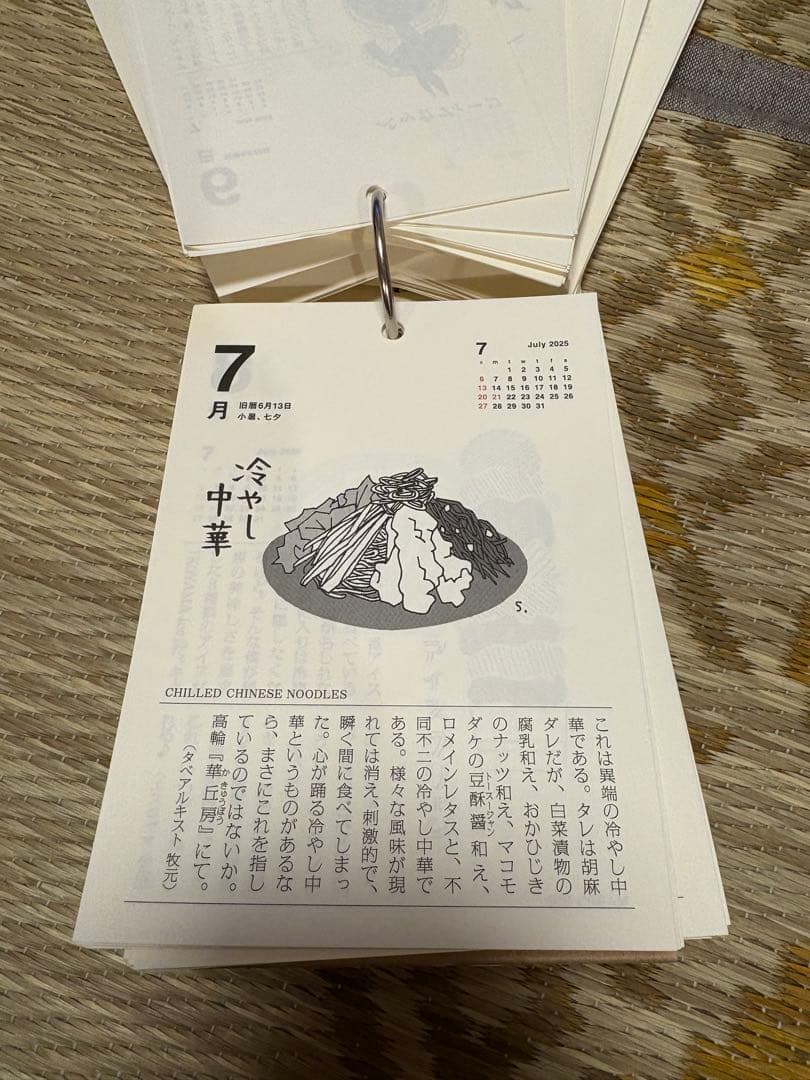 7
月
旧暦6月13日
小暑、七夕
7 July 2025
s m t w t f s
1 2 3 4 5
6 7 8 9 10 11 12
13 14 15 16 17 18 19
20 21 22 23 24 25 26
27 28 29 30 31
冷やし
中華
S.
CHILLED CHINESE NOODLES
これは異端の冷やし中
華である。タレは胡麻
ダレだが、白菜漬物の
腐乳和え、おかひじき
のナッツ和え、マコモ
ダケの豆酥醤和え、
ロメインレタスと、不
同不二の冷やし中華で
ある。様々な風味が現
れては消え、刺激的で、
瞬く間に食べてしまっ
た。心が踊る冷やし中
華というものがあるな
ら、まさにこれを指し
ているのではないか。
か きゅうぼう
高輪『華丘房』にて。
(タベアルキスト 牧元)